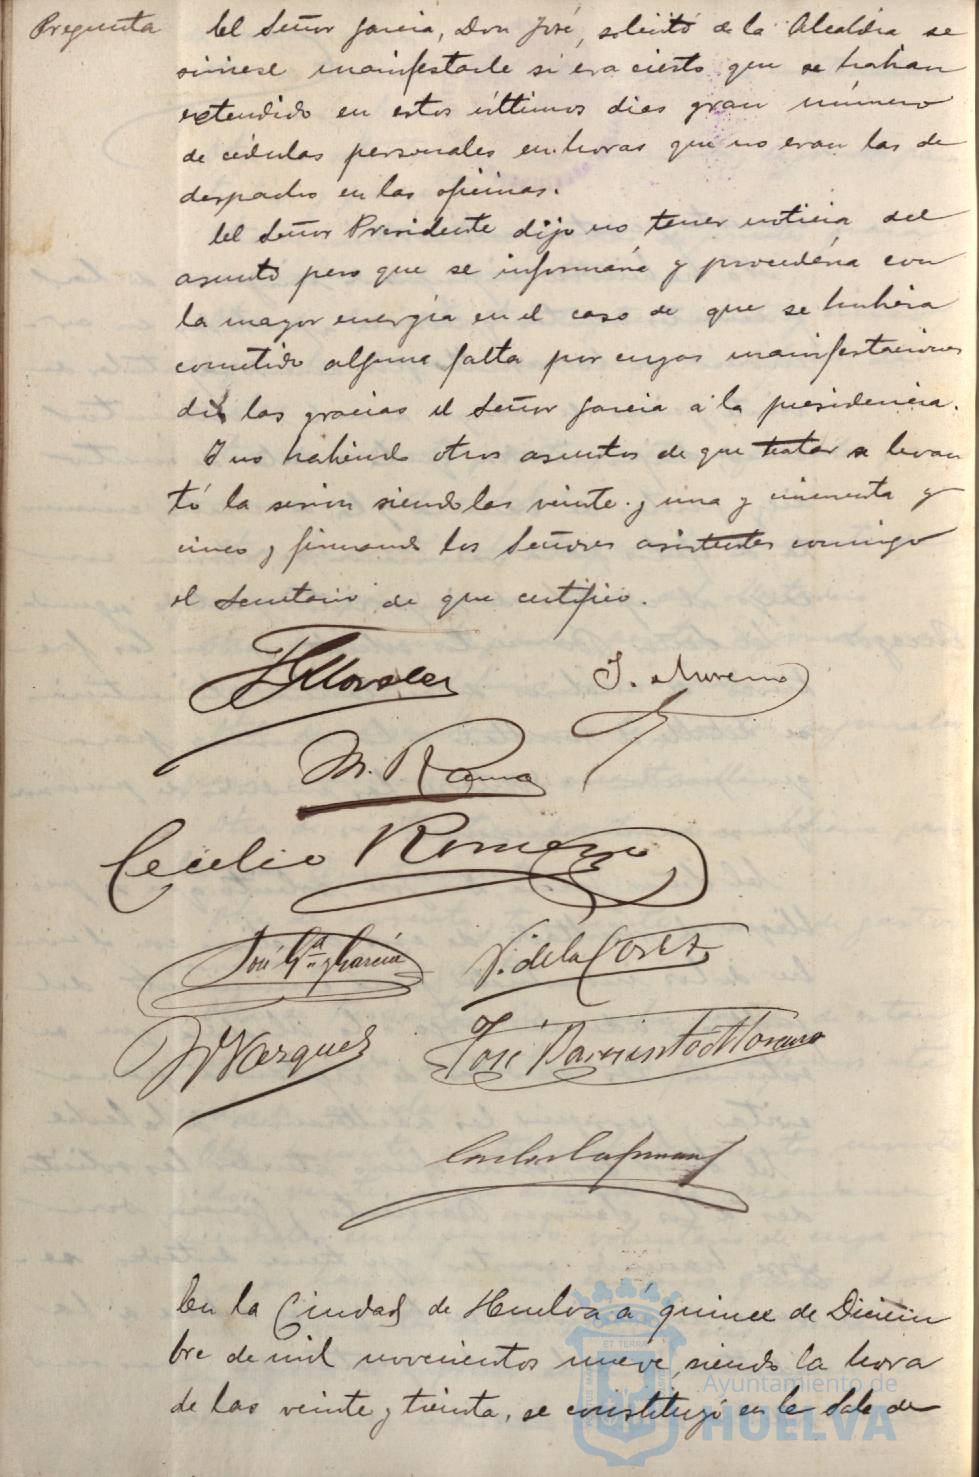 Pregunta
El Señor Garcia, Don José, solicitó de la Alcaldia se
sirviese manifestarle si era cierto que se habian
extendido en estos últimos dias gran número
de cédulas personales en horas que no eran las de
despacho en las oficinas.
El Señor Presidente dijo no tener noticia del
asunto pero que se informaria y procederia con
la mayor energía en el caso de que se hubiera
cometido alguna falta por cuyas manifestaciones
dió las gracias el Señor Garcia á la presidencia.
Y no habiendo otros asuntos de que tratar se levan
tó la sesion siendo las veinte y una y cincuenta y
cinco y firmando los Señores asistentes conmigo
el Secretario de que certifico.
J. Moreno
Cecilio Romero
José Gª y Garcia
V. de la Corte
Vazquez
José Barriento Moreno
En la Ciudad de Huelva á quince de Diciem
bre de mil novecientos nueve, siendo la hora
de las veinte y treinta, se constituyó en la Sala de
Ayuntamiento de
HUELVA